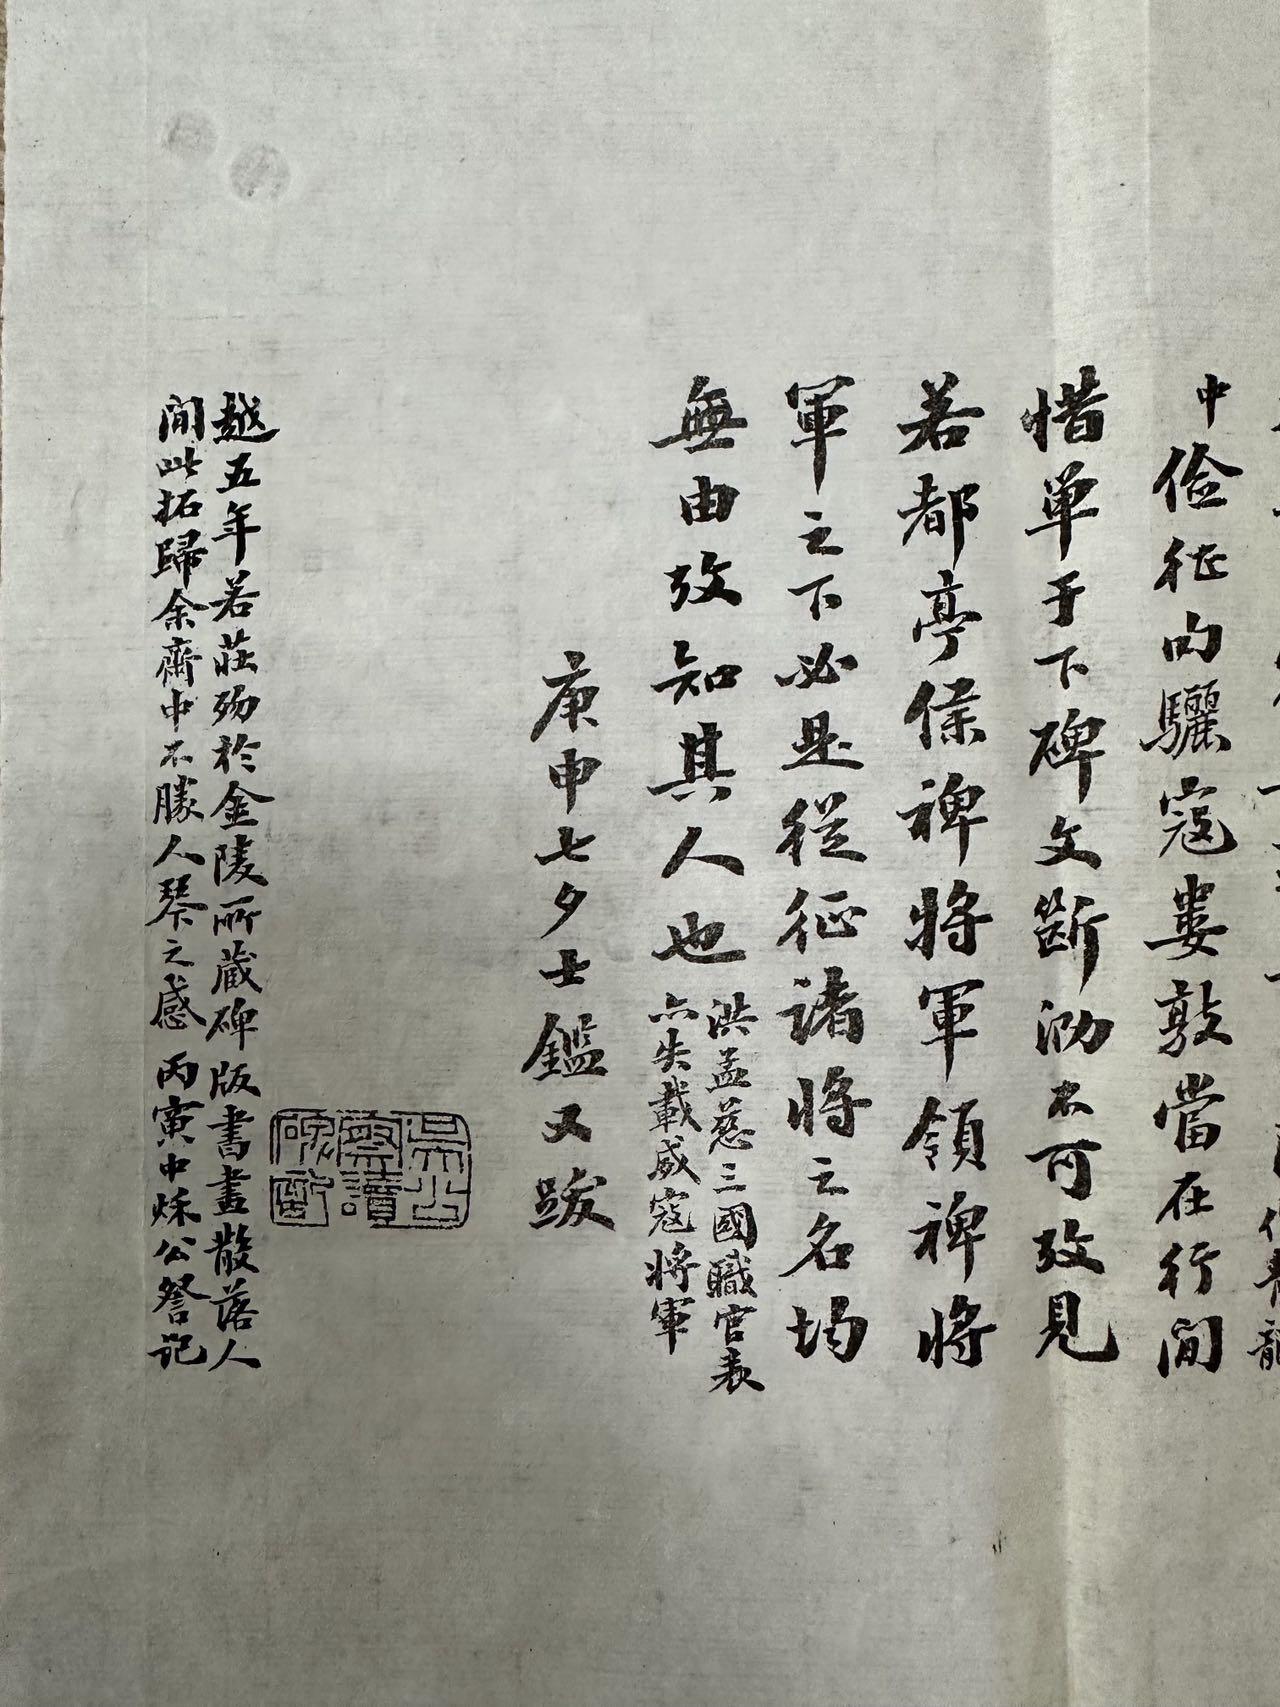 中儉征句驪寇婁敦當在行間
惜單于下碑文斷泐不可攷見
若都亭侯裨將軍領裨將
軍之下必是從征諸將之名均
無由攷知其人也
洪孟慈三國職官表
亦失載威寇將軍
庚申七夕士鑑又跋
越五年若莊殁於金陵所藏碑版書畫散落人
間此拓歸余齋中不勝人琴之感 丙寅中秌公詧記